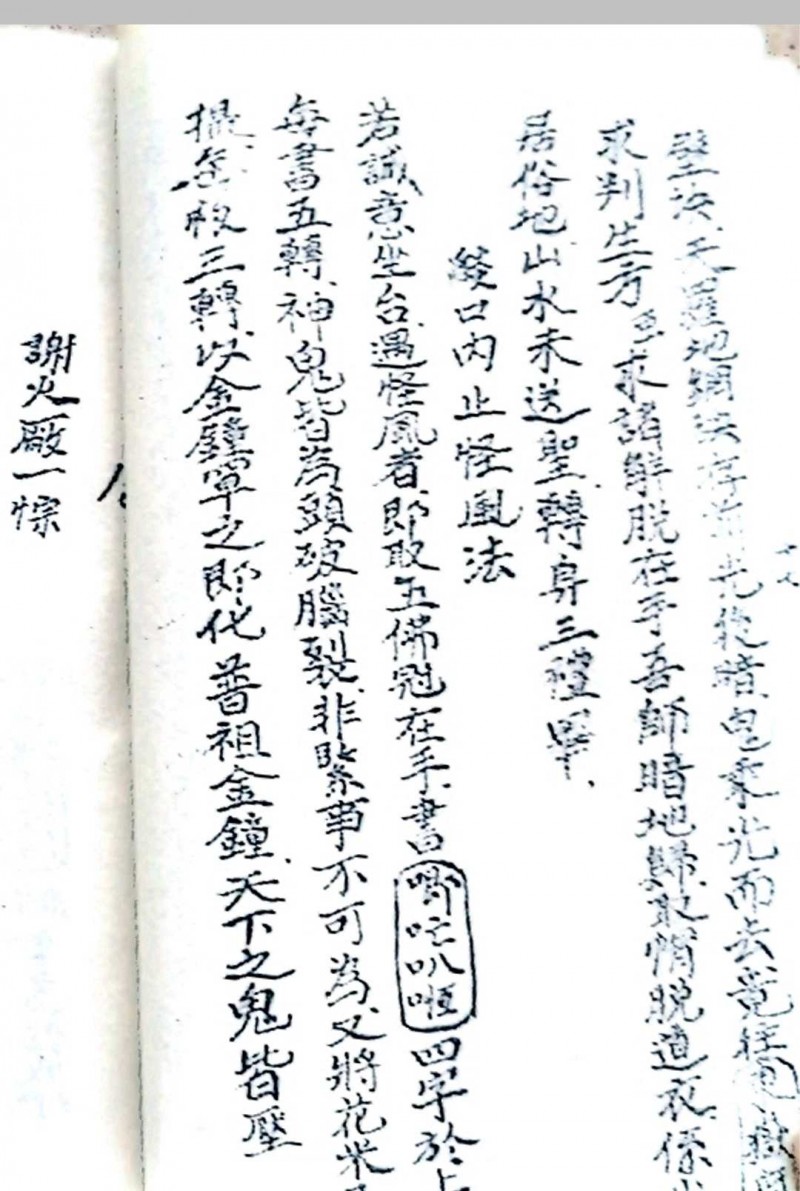 天羅地網決存前光後暗鬼乘光而去竟往
求判生方至求諸解脫在手吾師暗地歸取帽脫道衣係
居俗地山水未送聖轉身三禮畢
燄口內止怪風法
若誠意坐台遇怪風者即取五佛冠在手書唧吒叭𠸄四字於上
每書五轉神鬼皆為頭破腦裂非緊事不可為又將花米
三轉以金鐘罩之即化普祖金鐘天下之鬼皆壓
謝火厰一宗